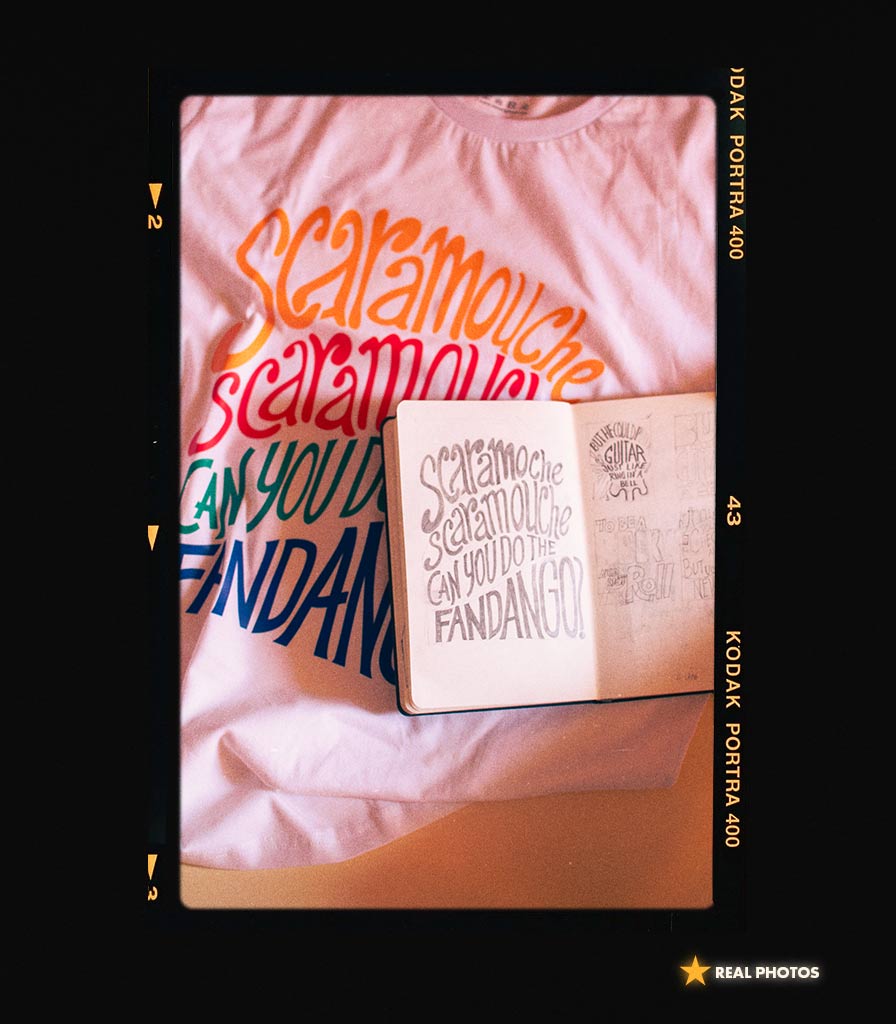 Scaramouche
Scaramouch
CAN YOU DO
FANDANG
Scaramoche
Scaramouche
CAN YOU DO THE
FANDANGO?
BUT HE COULD P
GUITAR
JUST LIKE
RING IN A
BELL
TO BE A
Roll
BUT
NE
ODAK PORTRA 400
43
KODAK PORTRA 400
2
3
REAL PHOTOS